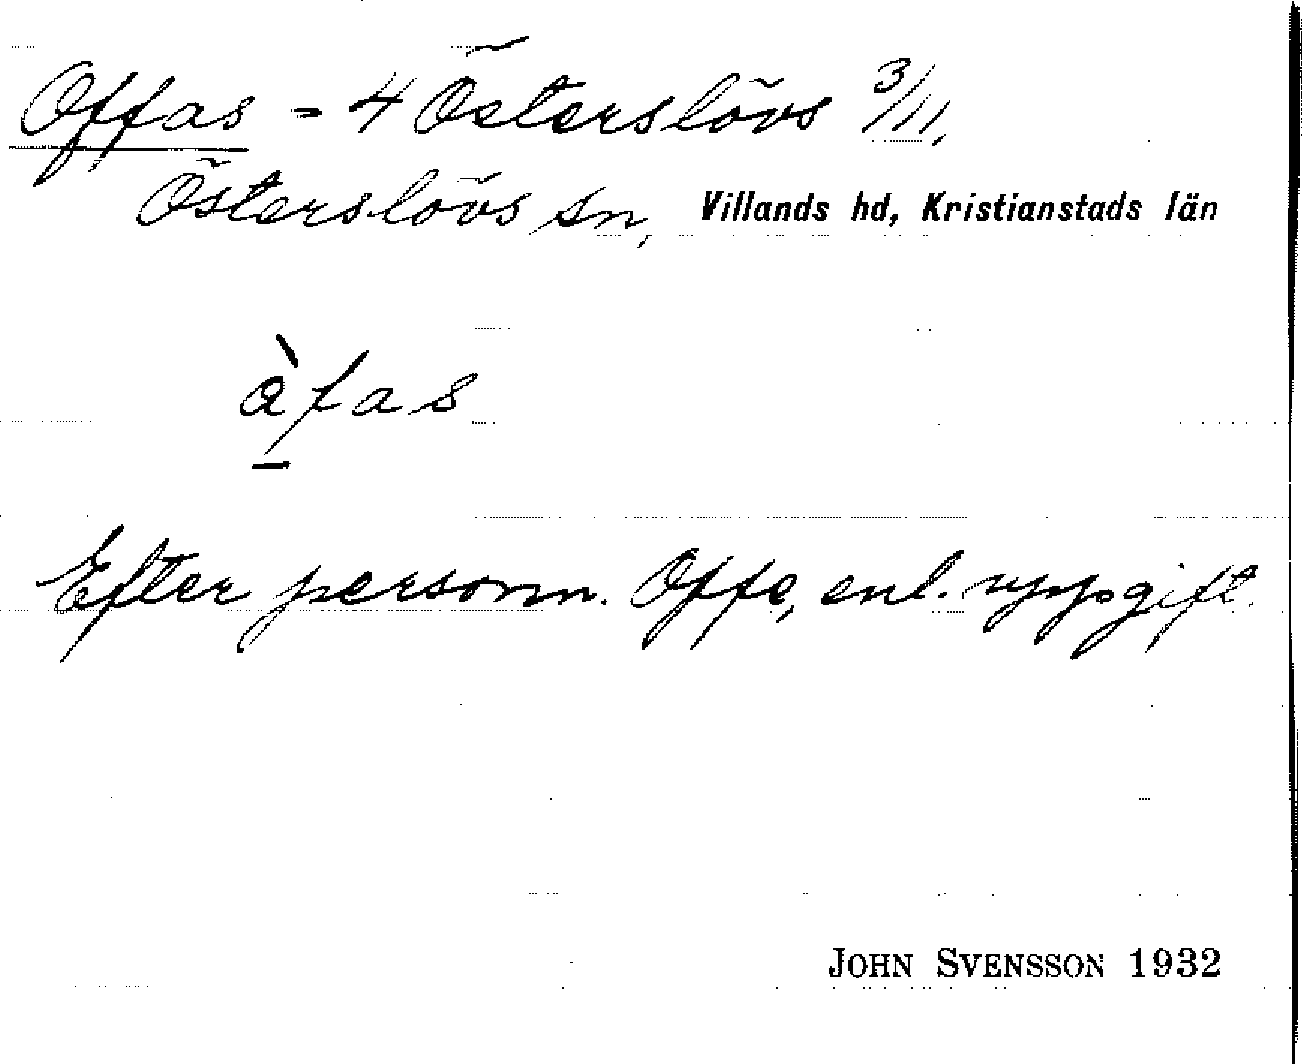 Offas - 4 Österslövs 3/11,
Österslövs sn, Villands hd, Kristianstads län
àfas
Efter personn. Offe, enl. uppgift.
JOHN SVENSSON 1932